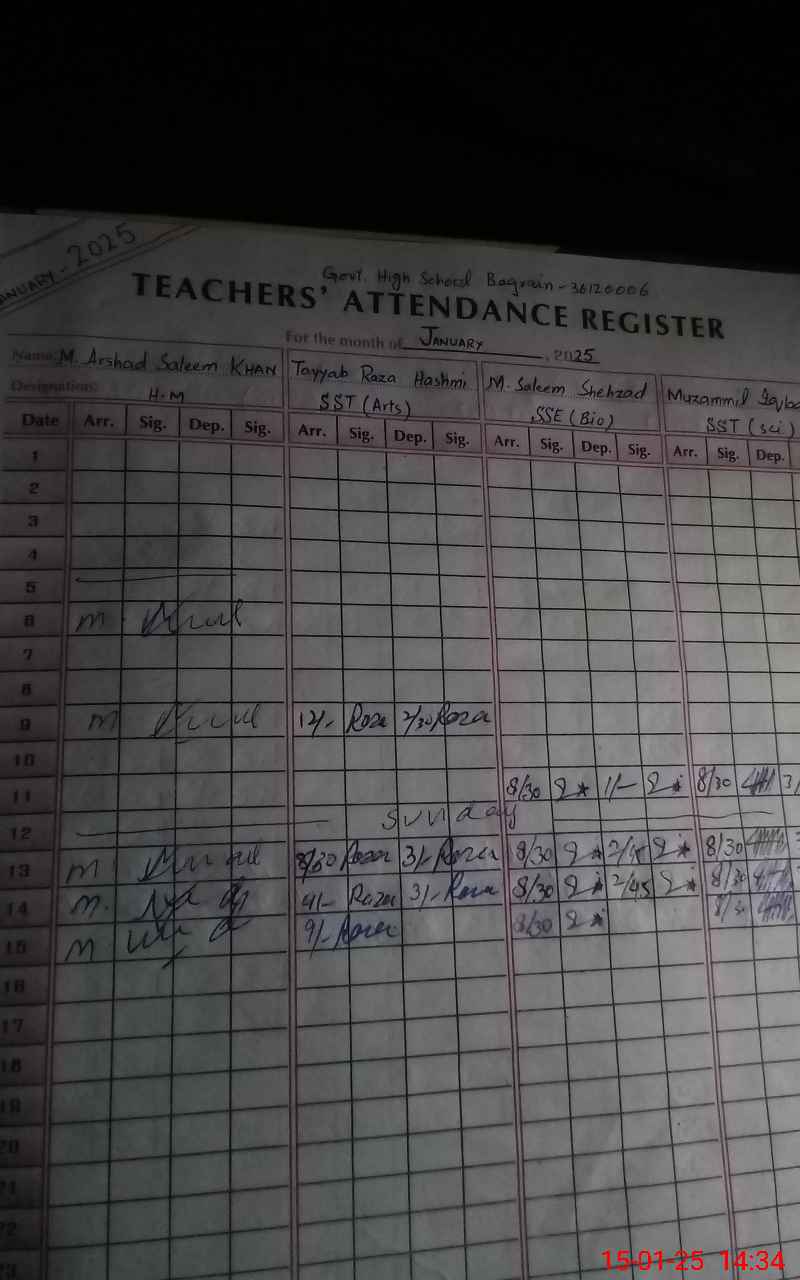 JANUARY - 2025
Govt. High School Bagrain - 36120006
TEACHERS' ATTENDANCE REGISTER
For the month of JANUARY, 2025
Name: M. Arshad Saleem KHAN Tayyab Raza Hashmi M. Saleem Shehzad Muzammil
Designation: H.M SST (Arts) SSE (Bio) SST (sci)
Date Arr. Sig. Dep. Sig. Arr. Sig. Dep. Sig. Arr. Sig. Dep. Sig. Arr. Sig. Dep.
1
2
3
4
5
6 m
7
8
9 m 12/- Raza 2/30 Raza
10
11 8/30 1/- 8/30
12 Sunday
13 m 8/30 Raza 3/- Raza 8/30 8/30
14 m. Raza 3/- Raza 8/30 2/45 8/30
15 m 9/- Raza 8/30
16
17
18
19
20
21
22
23
15-01-25 14:34